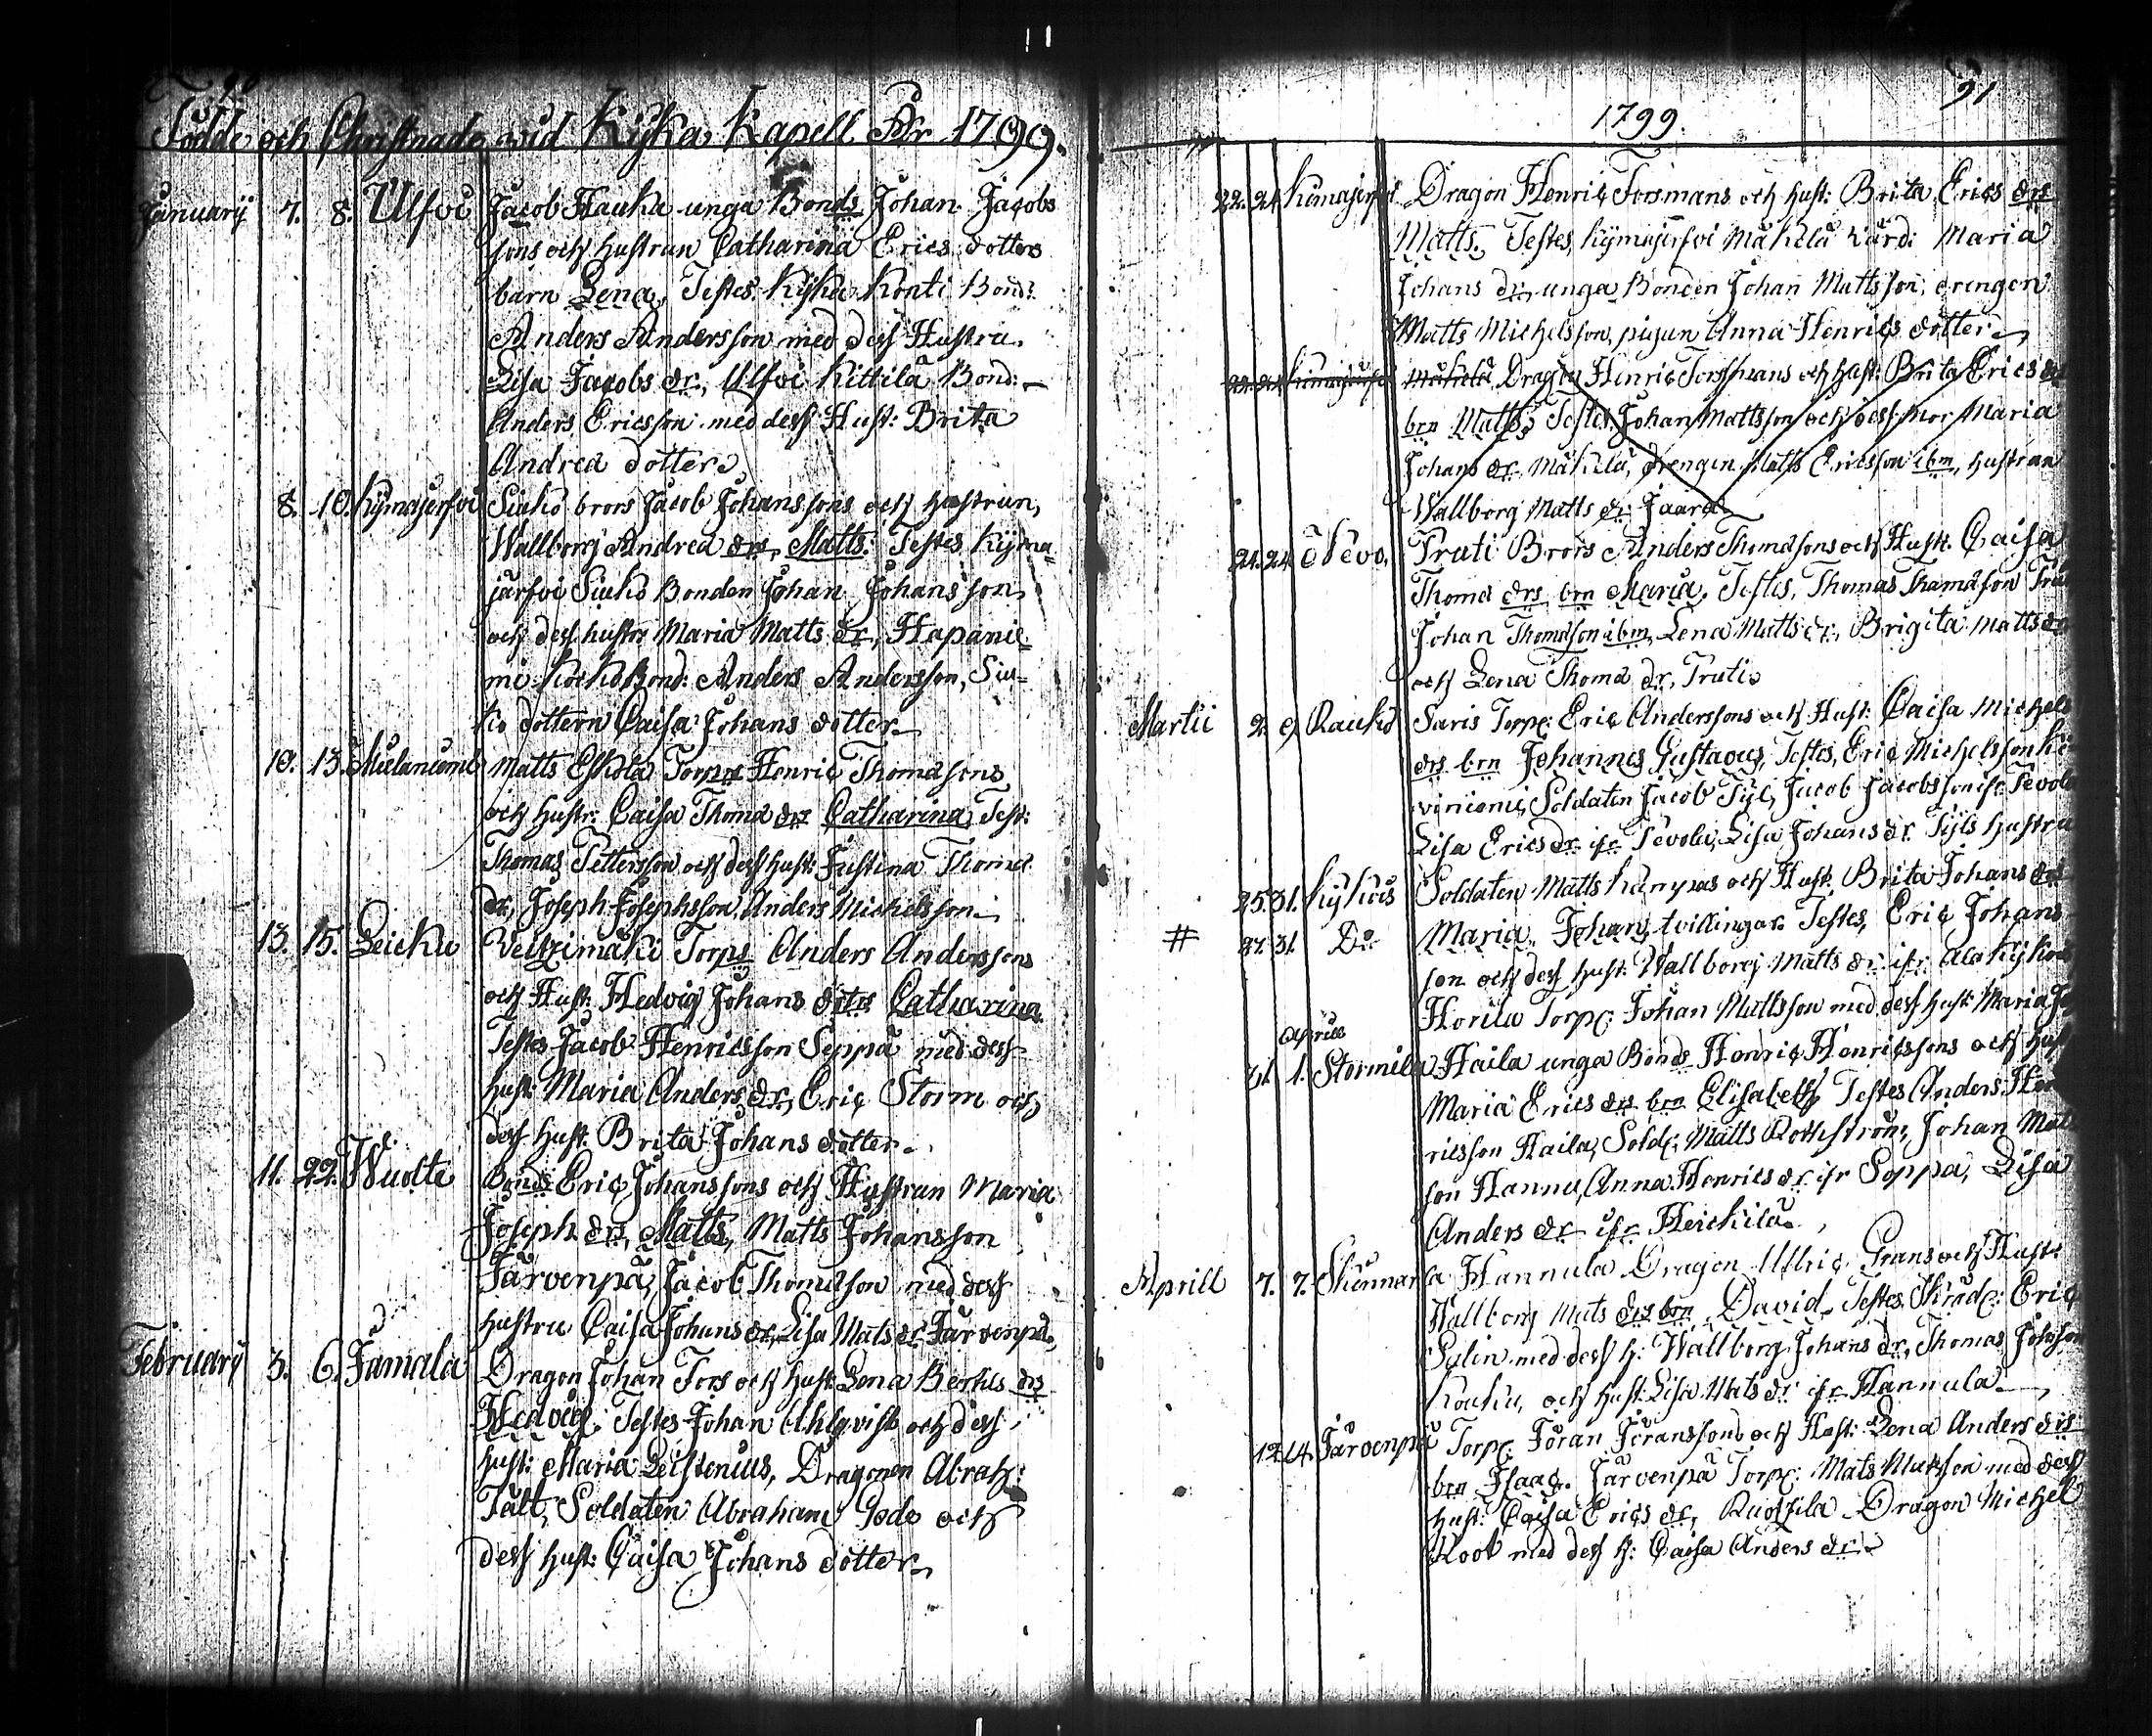 90
Födde och Christnade vid Kyka Kapell År 1799.
January 7. 8. Ulfvi Jacob Hauka unga Bonds Johan Jacobs
sons och hustrun Catharina Erics dotters
barn Lena, Testes Kyka Konti Bond:
Anders Andersson med dess Hustru
Lisa Jacobs dr, Ulfvi Kittilä Bond:
Anders Ericsson med dess Hust: Brita
Andrea dotter
8. 10. Kymäjerfvi Siuko brors Jacob Johanssons och hustrun,
Wallborg Andrea drs, Matts: Testes Kyma
järfvi Siuko Bonden Johan Johansson
och dess hustru Maria Matts dr, Hapanie
mi Bond: Anders Andersson, Siu
ko dottern Caisa Johans dotter
10. 13. Matts Eskola Torprs Henric Thomasons
och hustr: Caisa Thoma drs Catharina, Test:
Thomas Pettersson och dess hust: Justina Thoma
dr, Joseph Josephsson, Anders Michelsson
13. 15. Leicku Torps Anders Anderssons
och Hust: Hedvig Johans dotrs Catharina
Testes Jacob Henricsson Seppä med dess
hust: Maria Anders dr, Eric Storm och
dess hust: Brita Johans dotter
11. 22. Wuolte Bonds Eric Johanssons och Hustrun Maria
Joseph drs, Matts, Matts Johansson
Järvenpä, Jacob Thomasson med dess
hustru Caisa Johans dr, Lisa Mats dr Järvenpä,
February 3. 6. Jämälä Dragon Johan Fors och hust: Lena Bertils drs
Hedvig. Testes Johan Ahlqvist och dess
hust: Maria Leistenius, Dragonen Abrah:
Tält, Soldaten Abraham Gode och
dess hust: Caisa Johans dotter
91
1799.
22. 24. Kimajerfvi Dragon Henric Forsmans och hust: Brita Erics drs
Matts. Testes, Kymäjerfvi Mäkilä värd: Maria
Johans dr, unga Bonden Johan Mattsson, drengen
Matts Michelsson, pigan Anna Henrics dotter
22. 24. Kimajerfvi Mäkilä, Dragon Henric Forsmans och hust: Brita Erics
brn Matts, Testes Johan Mattsson och dess mor Maria
Johans dr Mäkilä, drengen Matts Ericsson ibm, hustrun
Wallborg Matts dr
21. 24. Nevo, Truti Brors Anders Thomasons och Hustr. Caisa
Thoma drs brn Maria, Testes, Thomas Thomason
Johan Thomason ibm, Lena Matts dr, Brigita Matts dr
och Lena Thoma dr, Truti
Martii 2. 9. Raukö Saris Torp: Eric Anderssons och Hust: Caisa Michels
drs brn Johannes Gustavus, Testes, Eric Michelsson
Soldaten Jacob Tyl, Jacob Jacobsson ifr Tevola
Lisa Erics dr ifr Tevola, Lisa Johans dr Tyls hustru
25. 31. Kykois Soldaten Matts och Hust: Brita Johans drs
# 27. 31. Do Maria, Johan, tvillingar. Testes, Eric Johans
son och dess hust: Wallborg Matts dr ifr
Horila Torp: Johan Mattsson med dess hust: Maria
Aprill
31. 1. Stormila Haila unga Bonds Henric Henricssons och
Maria Erics drs brn Elisabeth Testes Anders Hen
ricsson Haila, Sold: Matts Johan Matts
son Hannu, Anna Henrics dr ifr Soppa, Lisa
Anders dr ifr Heickilä
Aprill 7. 7. Hannula Dragon Ullric Grans och Hustr
Wallborg Mats drs brn, David, Testes, Eric
Salin med dess h: Wallborg Johans dr, Thomas
och hust: Lisa Mats dr ifr Hannula
12. 14. Järvenpä Torp: Jöran Jöranssons och Hust: Lena Anders drs
brn Isaac. Järvenpä Torp: Mats Matsson med dess
hust: Caisa Erics dr, Dragon Michel
Koot med dess h: Caisa Anders dr